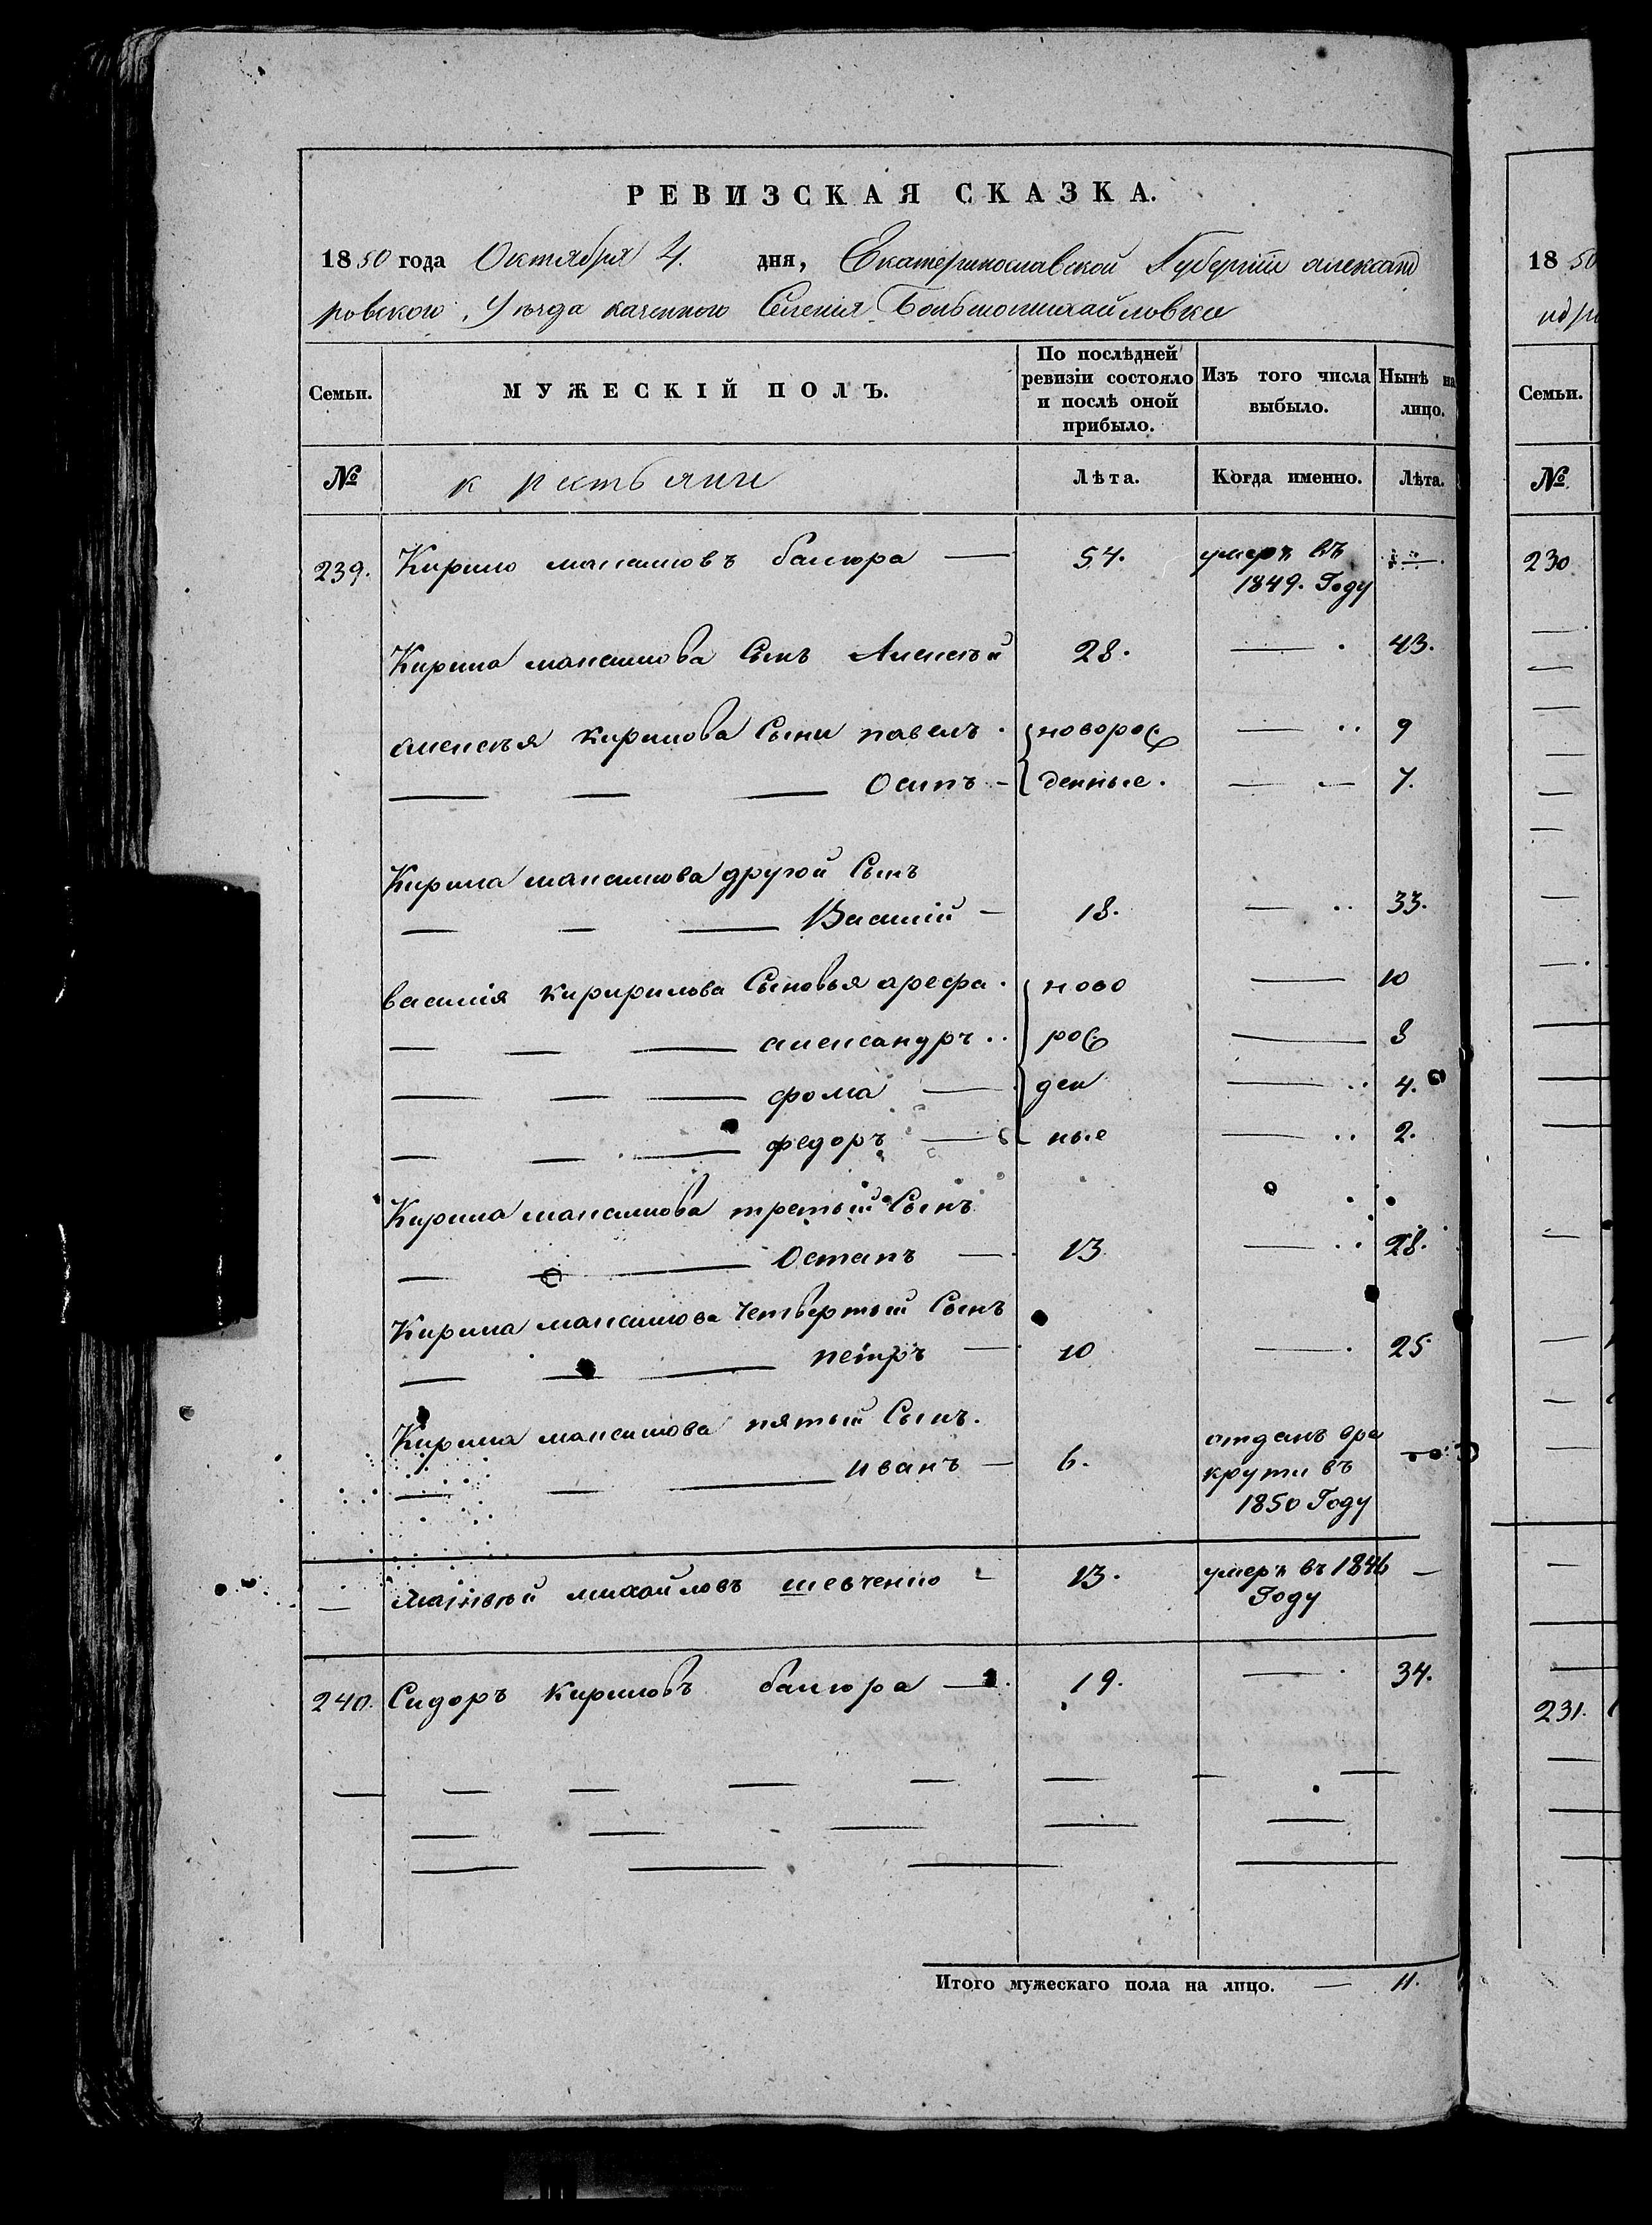 РЕВИЗСКАЯ СКАЗКА.
1850 года Октября 4. дня, Екатеринославской Губерніи александ
ровского, Уѣзда казенного Селенія Большомихайловки
Семьи.
МУЖЕСКІЙ ПОЛЪ.
По послѣдней ревизіи состояло и послѣ оной прибыло.
Изъ того числа выбыло.
Нынѣ на лицо.
№ крестьяни Лѣта. Когда именно. Лѣта.
239. Кирило максимовъ балюра — 54. умеръ въ — .
1849. Году
Кирила максимова Сынъ Алексѣй 28. — . 43.
алексѣя кирилова Сыни павелъ . новорож — .. 9
— — — Осипъ - денные. — — 7.
Кирила максимова другой Сынъ
— — — Василій — 18. — .. 33.
василія киририлова Сыновья арефа . ново — 10
— — — александръ .. рож — 8
— — — фома — ден — .. 4.
— — — федоръ — ные — .. 2.
Кирила максимова третьій Сынъ
— — — Остапъ — 13 — .. 28.
Кирила максимова четвертый Сынъ
— — — петръ — 10 — . 25
Кирила максимова пятый Сынъ.
— — — иванъ — 6. отданъ вре
крути въ
1850 Году
— Матвѣй михайловъ шевченко - 13. умеръ въ 1846 —
Году
240. Сидоръ кириловъ балюра — . 19. — . 34.
Итого мужескаго пола на лицо. — 11.
1850
Семьи.
№
230
231.